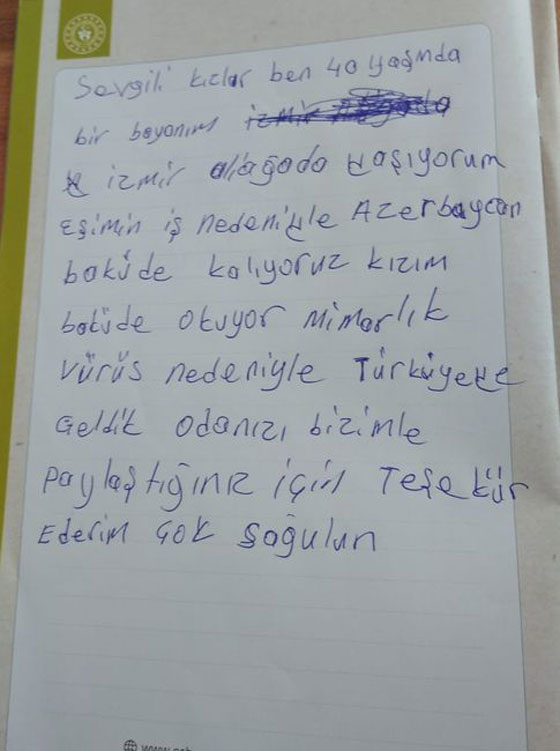 Sevgili kızlar ben 40 yaşında
bir bayanım
izmir aliağada yaşıyorum
Eşimin iş nedeniyle Azerbaycan
baküde kalıyoruz kızım
baküde okuyor mimarlık
vürüs nedeniyle Türkiyeye
Geldik odanızı bizimle
paylaştığınız için Teşekür
Ederim çok sağulun